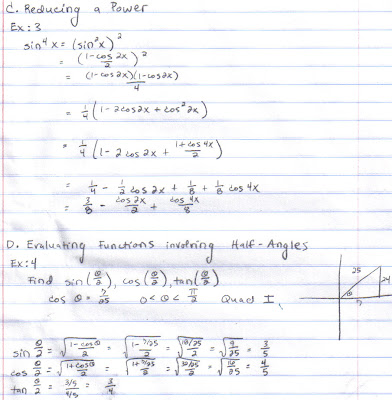 C. Reducing a Power
Ex: 3
sin⁴ x = (sin² x)²
= ((1-cos 2x)/2)²
= (1-cos 2x)(1-cos 2x)/4
= 1/4 (1 - 2cos2x + cos² 2x)
= 1/4 (1 - 2 cos 2x + (1+cos 4x)/2)
= 1/4 - 1/2 cos 2x + 1/8 + 1/8 cos 4x
= 3/8 - cos 2x/2 + cos 4x/8
D. Evaluating Functions involving Half-Angles
Ex: 4
Find sin(θ/2), cos(θ/2), tan(θ/2)
cos θ = 7/25 0 < θ < π/2 Quad I
25
24
θ
7
sin θ/2 = √((1-cosθ)/2) = √((1-7/25)/2) = √((18/25)/2) = √(9/25) = 3/5
cos θ/2 = √((1+cosθ)/2) = √((1+7/25)/2) = √((32/25)/2) = √(16/25) = 4/5
tan θ/2 = (3/5)/(4/5) = 3/4